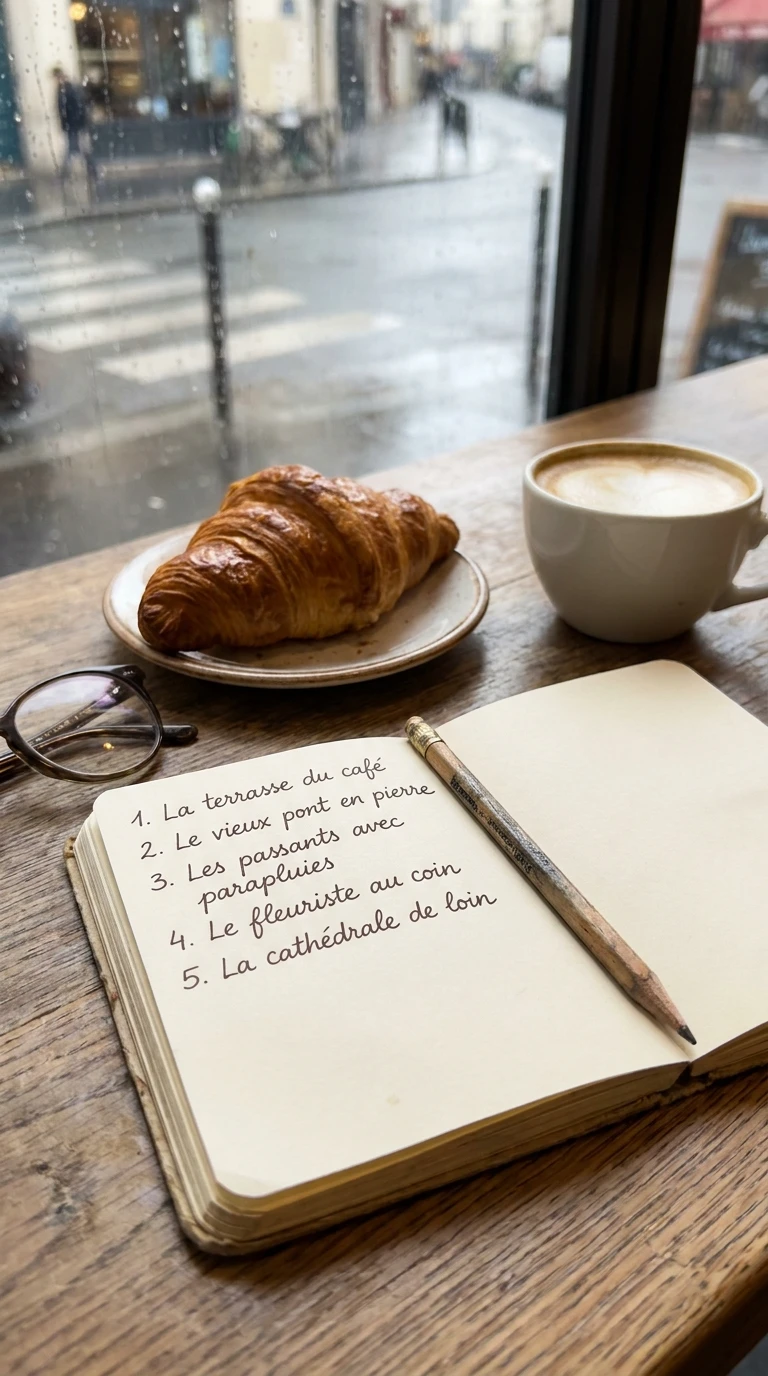 1. La terrasse du café
2. Le vieux pont en pierre
3. Les passants avec
parapluies
4. Le fleuriste au coin
5. La cathédrale de loin